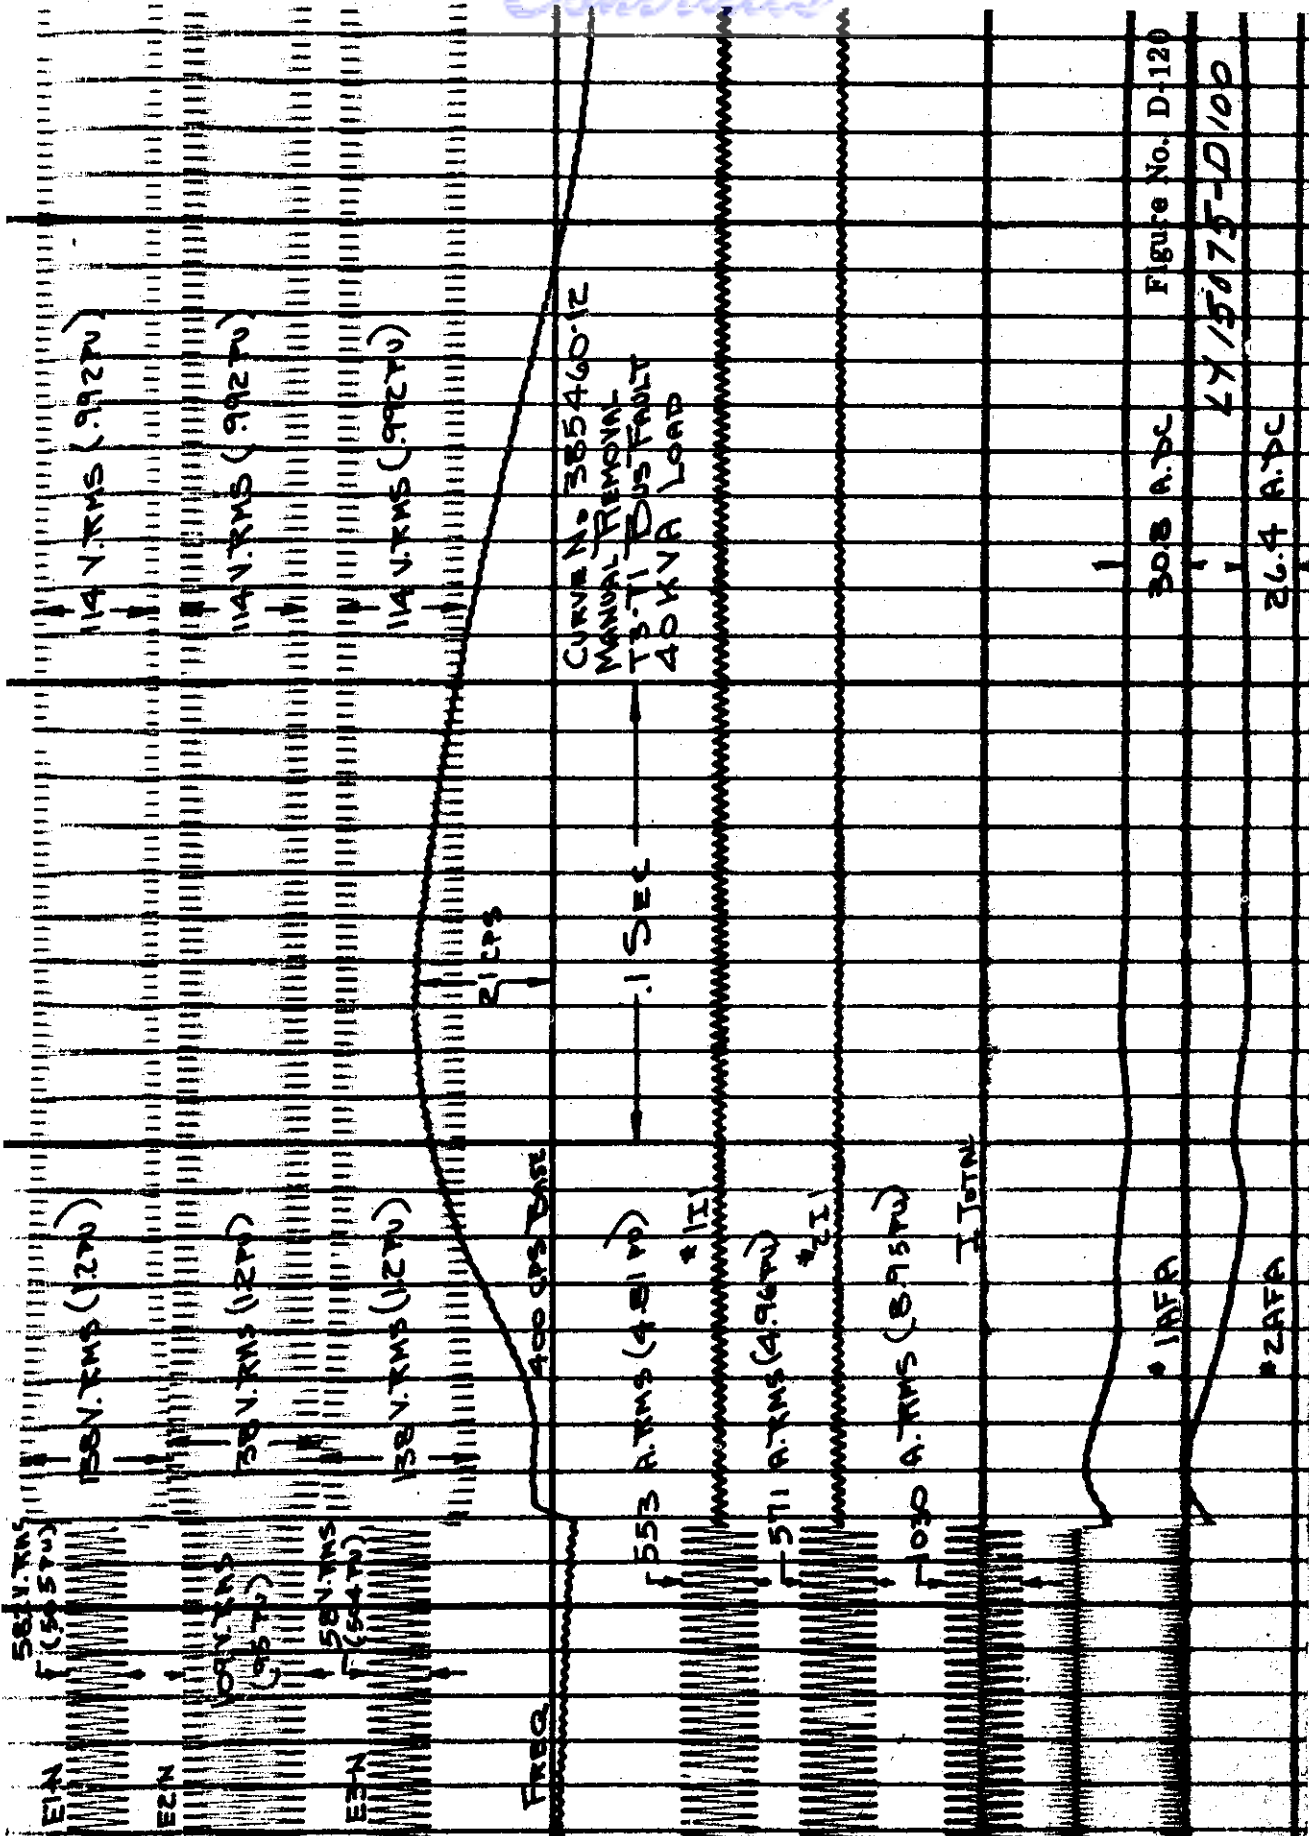 58.2 V. RMS
(.505 PU)
E1-N
138 V. RMS (1.2 PU)
114 V. RMS (.992 PU)
E2-N
109 V. RMS
(.95 PU)
138 V. RMS (1.2 PU)
114 V. RMS (.992 PU)
E3-N
58 V. RMS
(.504 PU)
138 V. RMS (1.2 PU)
114 V. RMS (.992 PU)
FREQ
400 CPS BASE
21 CPS
.1 SEC
CURVE No 385460-12
MANUAL REMOVAL
T3-T1 BUS FAULT
40 KVA LOAD
553 A. RMS (4.81 PU)
#1 I
571 A. RMS (4.96 PU)
#2 I
1030 A. RMS (8.95 PU)
I TOTAL
#1AFA
30.8 A. DC
#2AFA
26.4 A. DC
Figure No. D-120
LY 15075-D100